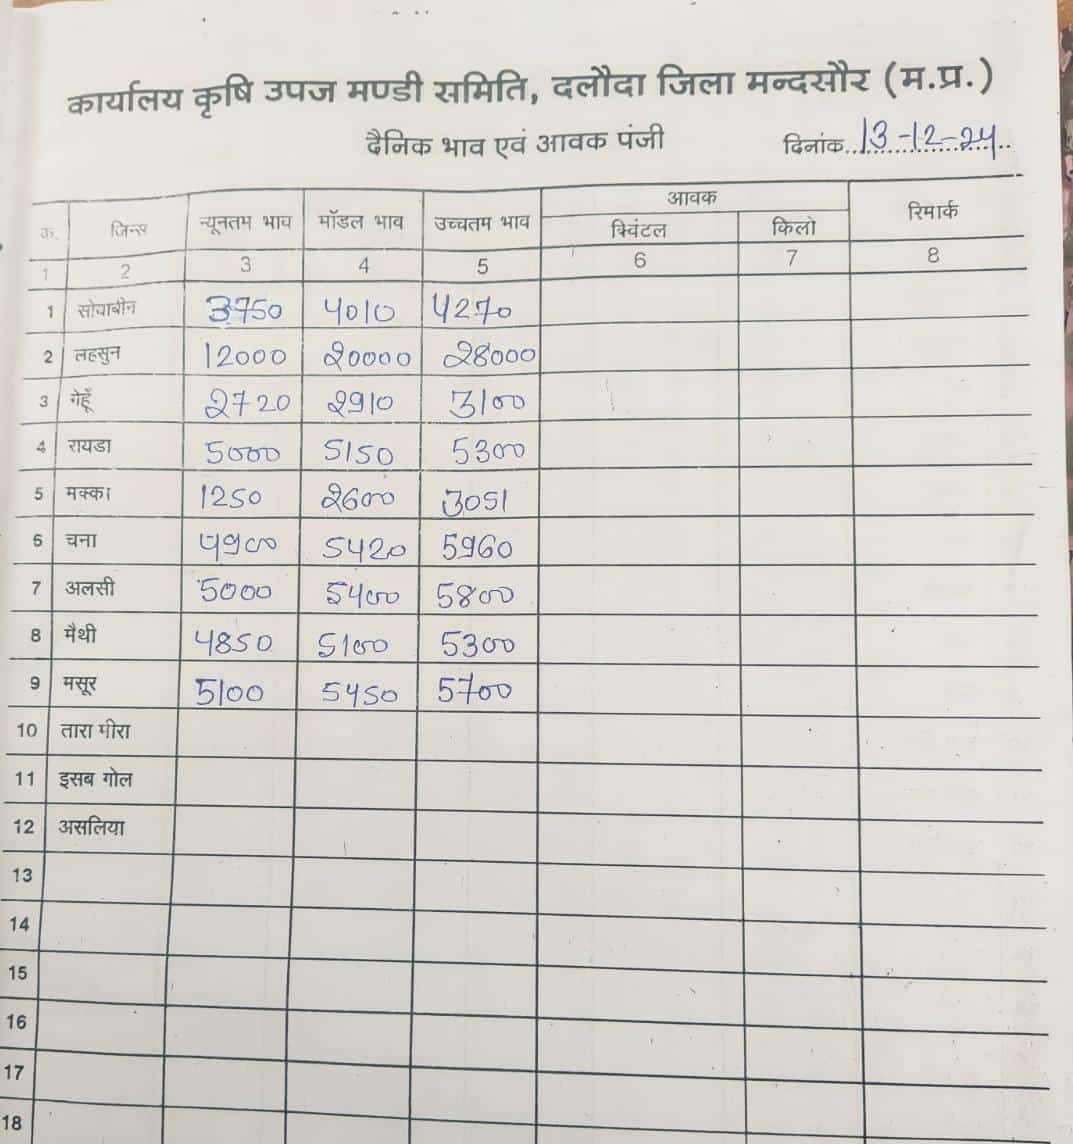 कार्यालय कृषि उपज मण्डी समिति, दलौदा जिला मन्दसौर (म.प्र.)
दैनिक भाव एवं आवक पंजी दिनांक 13-12-24
क. जिन्स न्यूनतम भाव मॉडल भाव उच्चतम भाव आवक रिमार्क
क्विंटल किलो
1 2 3 4 5 6 7 8
1 सोयाबीन 3750 4010 4270
2 लहसुन 12000 20000 28000
3 गेहूँ 2720 2910 3100
4 रायडा 5000 5150 5300
5 मक्का 1250 2600 3051
6 चना 4900 5420 5960
7 अलसी 5000 5400 5800
8 मैथी 4850 5100 5300
9 मसूर 5100 5450 5700
10 तारा मीरा
11 इसब गोल
12 असलिया
13
14
15
16
17
18